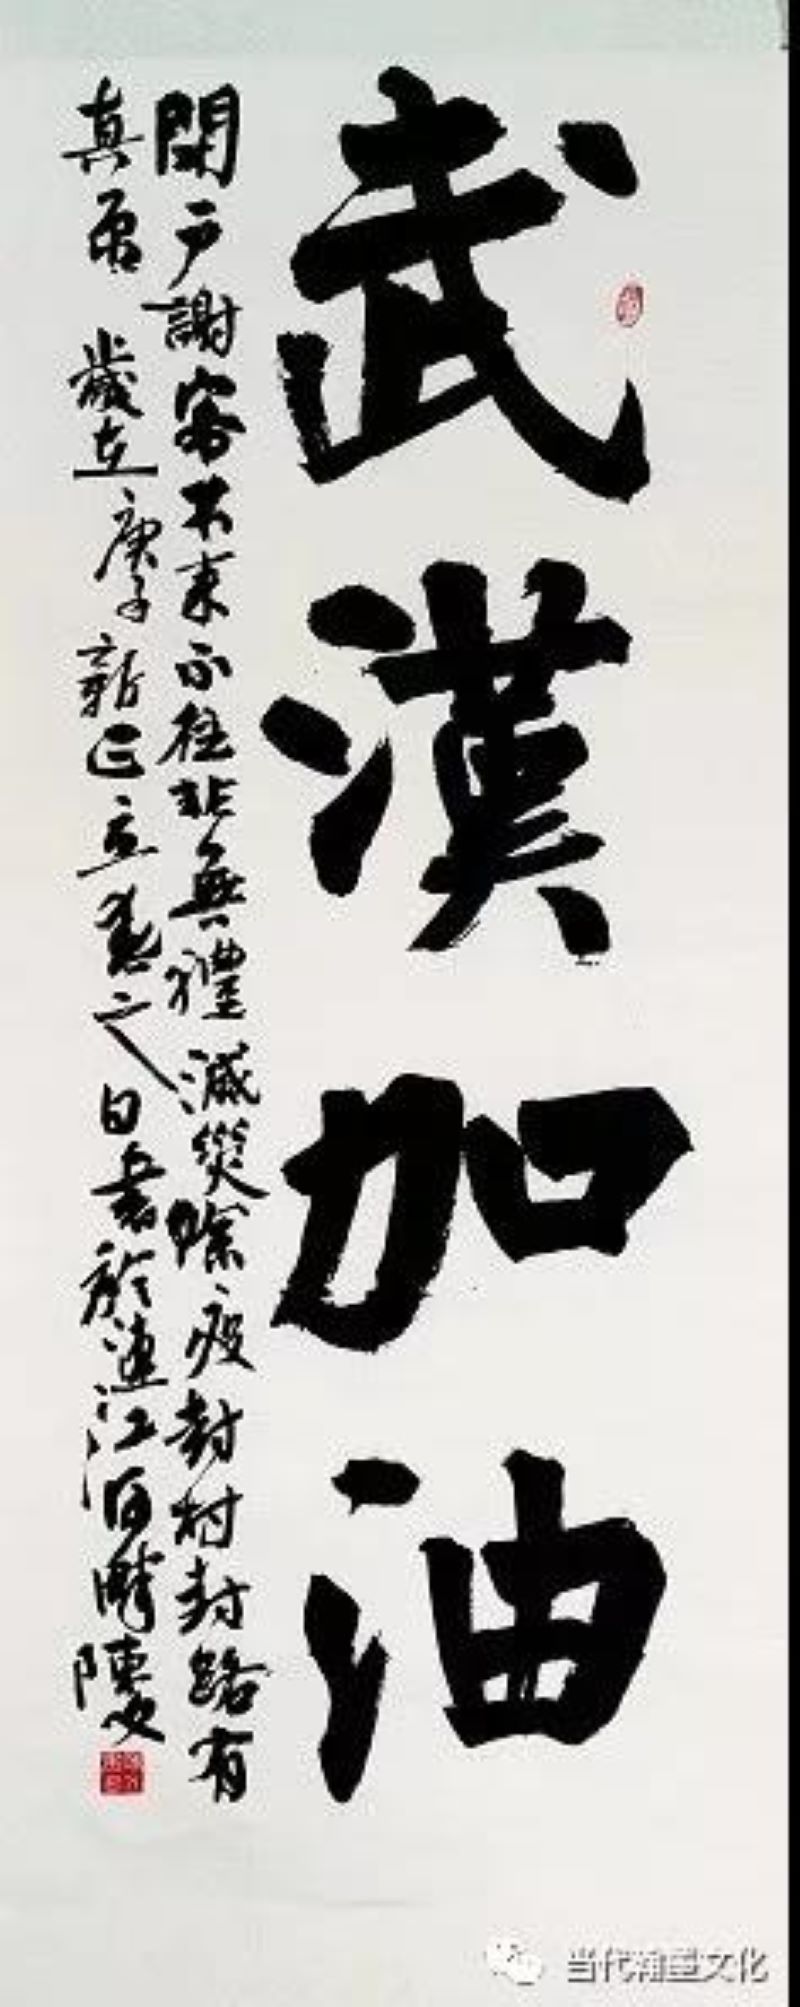 武漢加油
閉户謝客不來不往非無禮減災除疫封村封路有
真君 歲在庚子新正立春之日書於漣江河畔陳
当代翰墨文化